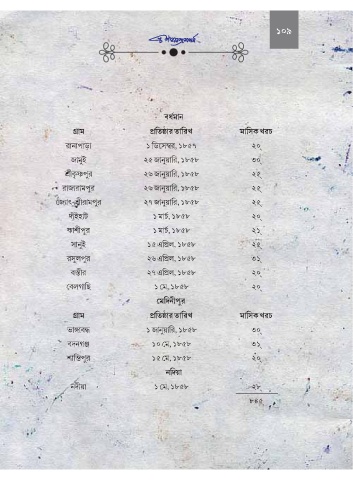 ১০৯
বর্ধমান
গ্রাম প্রতিষ্ঠার তারিখ মাসিক খরচ
রানাপাড়া ১ ডিসেম্বর, ১৮৫৭ ২০
জামুই ২৫ জানুয়ারি, ১৮৫৮ ৩০
শ্রীকৃষ্ণপুর ২৬ জানুয়ারি, ১৮৫৮ ২৫
রাজারামপুর ২৬ জানুয়ারি, ১৮৫৮ ২৫
জ্যোৎ-শ্রীরামপুর ২৭ জানুয়ারি, ১৮৫৮ ২৫
দাঁইহাট ১ মার্চ, ১৮৫৮ ২০
কাশীপুর ১ মার্চ, ১৮৫৮ ২১
সানুই ১৫ এপ্রিল, ১৮৫৮ ২৫
রসুলপুর ২৬ এপ্রিল, ১৮৫৮ ৩১
বন্তীর ২৭ এপ্রিল, ১৮৫৮ ২০
বেলগাছি ১ মে, ১৮৫৮ ২০
মেদিনীপুর
গ্রাম প্রতিষ্ঠার তারিখ মাসিক খরচ
ভাঙ্গাবন্ধ ১ জানুয়ারি, ১৮৫৮ ৩০
বদনগঞ্জ ১০ মে, ১৮৫৮ ৩১
শান্তিপুর ১৫ মে, ১৮৫৮ ২০
নদিয়া
নদীয়া ১ মে, ১৮৫৮ ২৮
৮৪৫